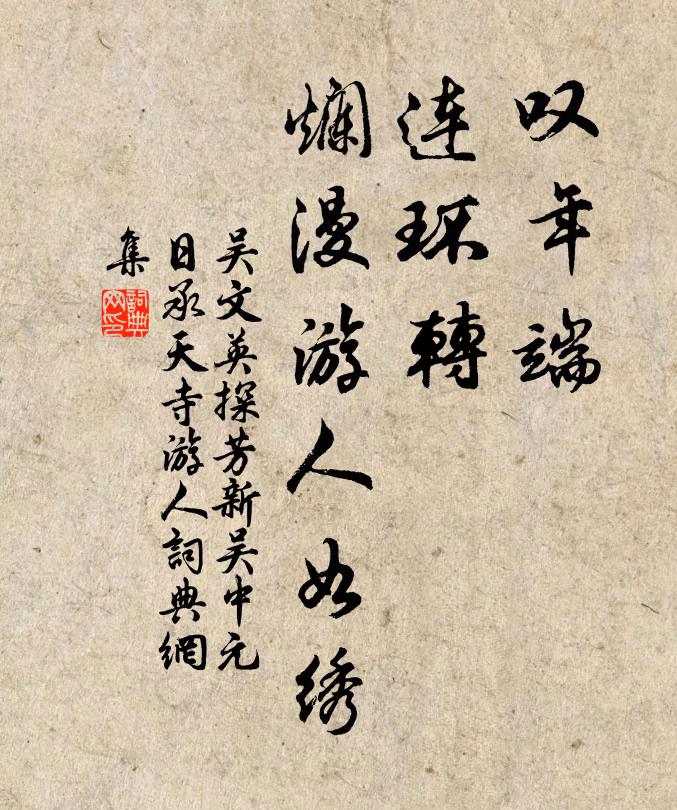 叹年端
连环轉
爛漫游人如绣
吴文英探芳新吴中元
日承天寺游人詞典網
集
詞典網印